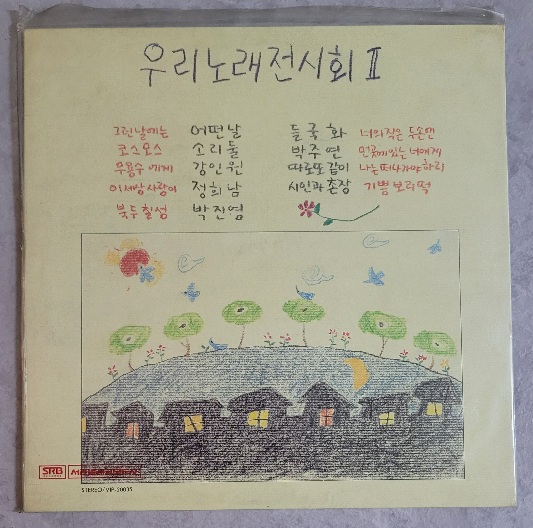 우리노래전시회 II
그런날에는 어떤날 들국화 너의작은 두손엔
코스모스 소리둘 박주연 먼곳에있는 너에게
무용수에게 강인원 따로또같이 나는떠나가야하리
이세상사랑이 정희남 시인과 촌장 기쁨보리떡
북두칠성 박진영
SRB
STEREO/VIP-20035